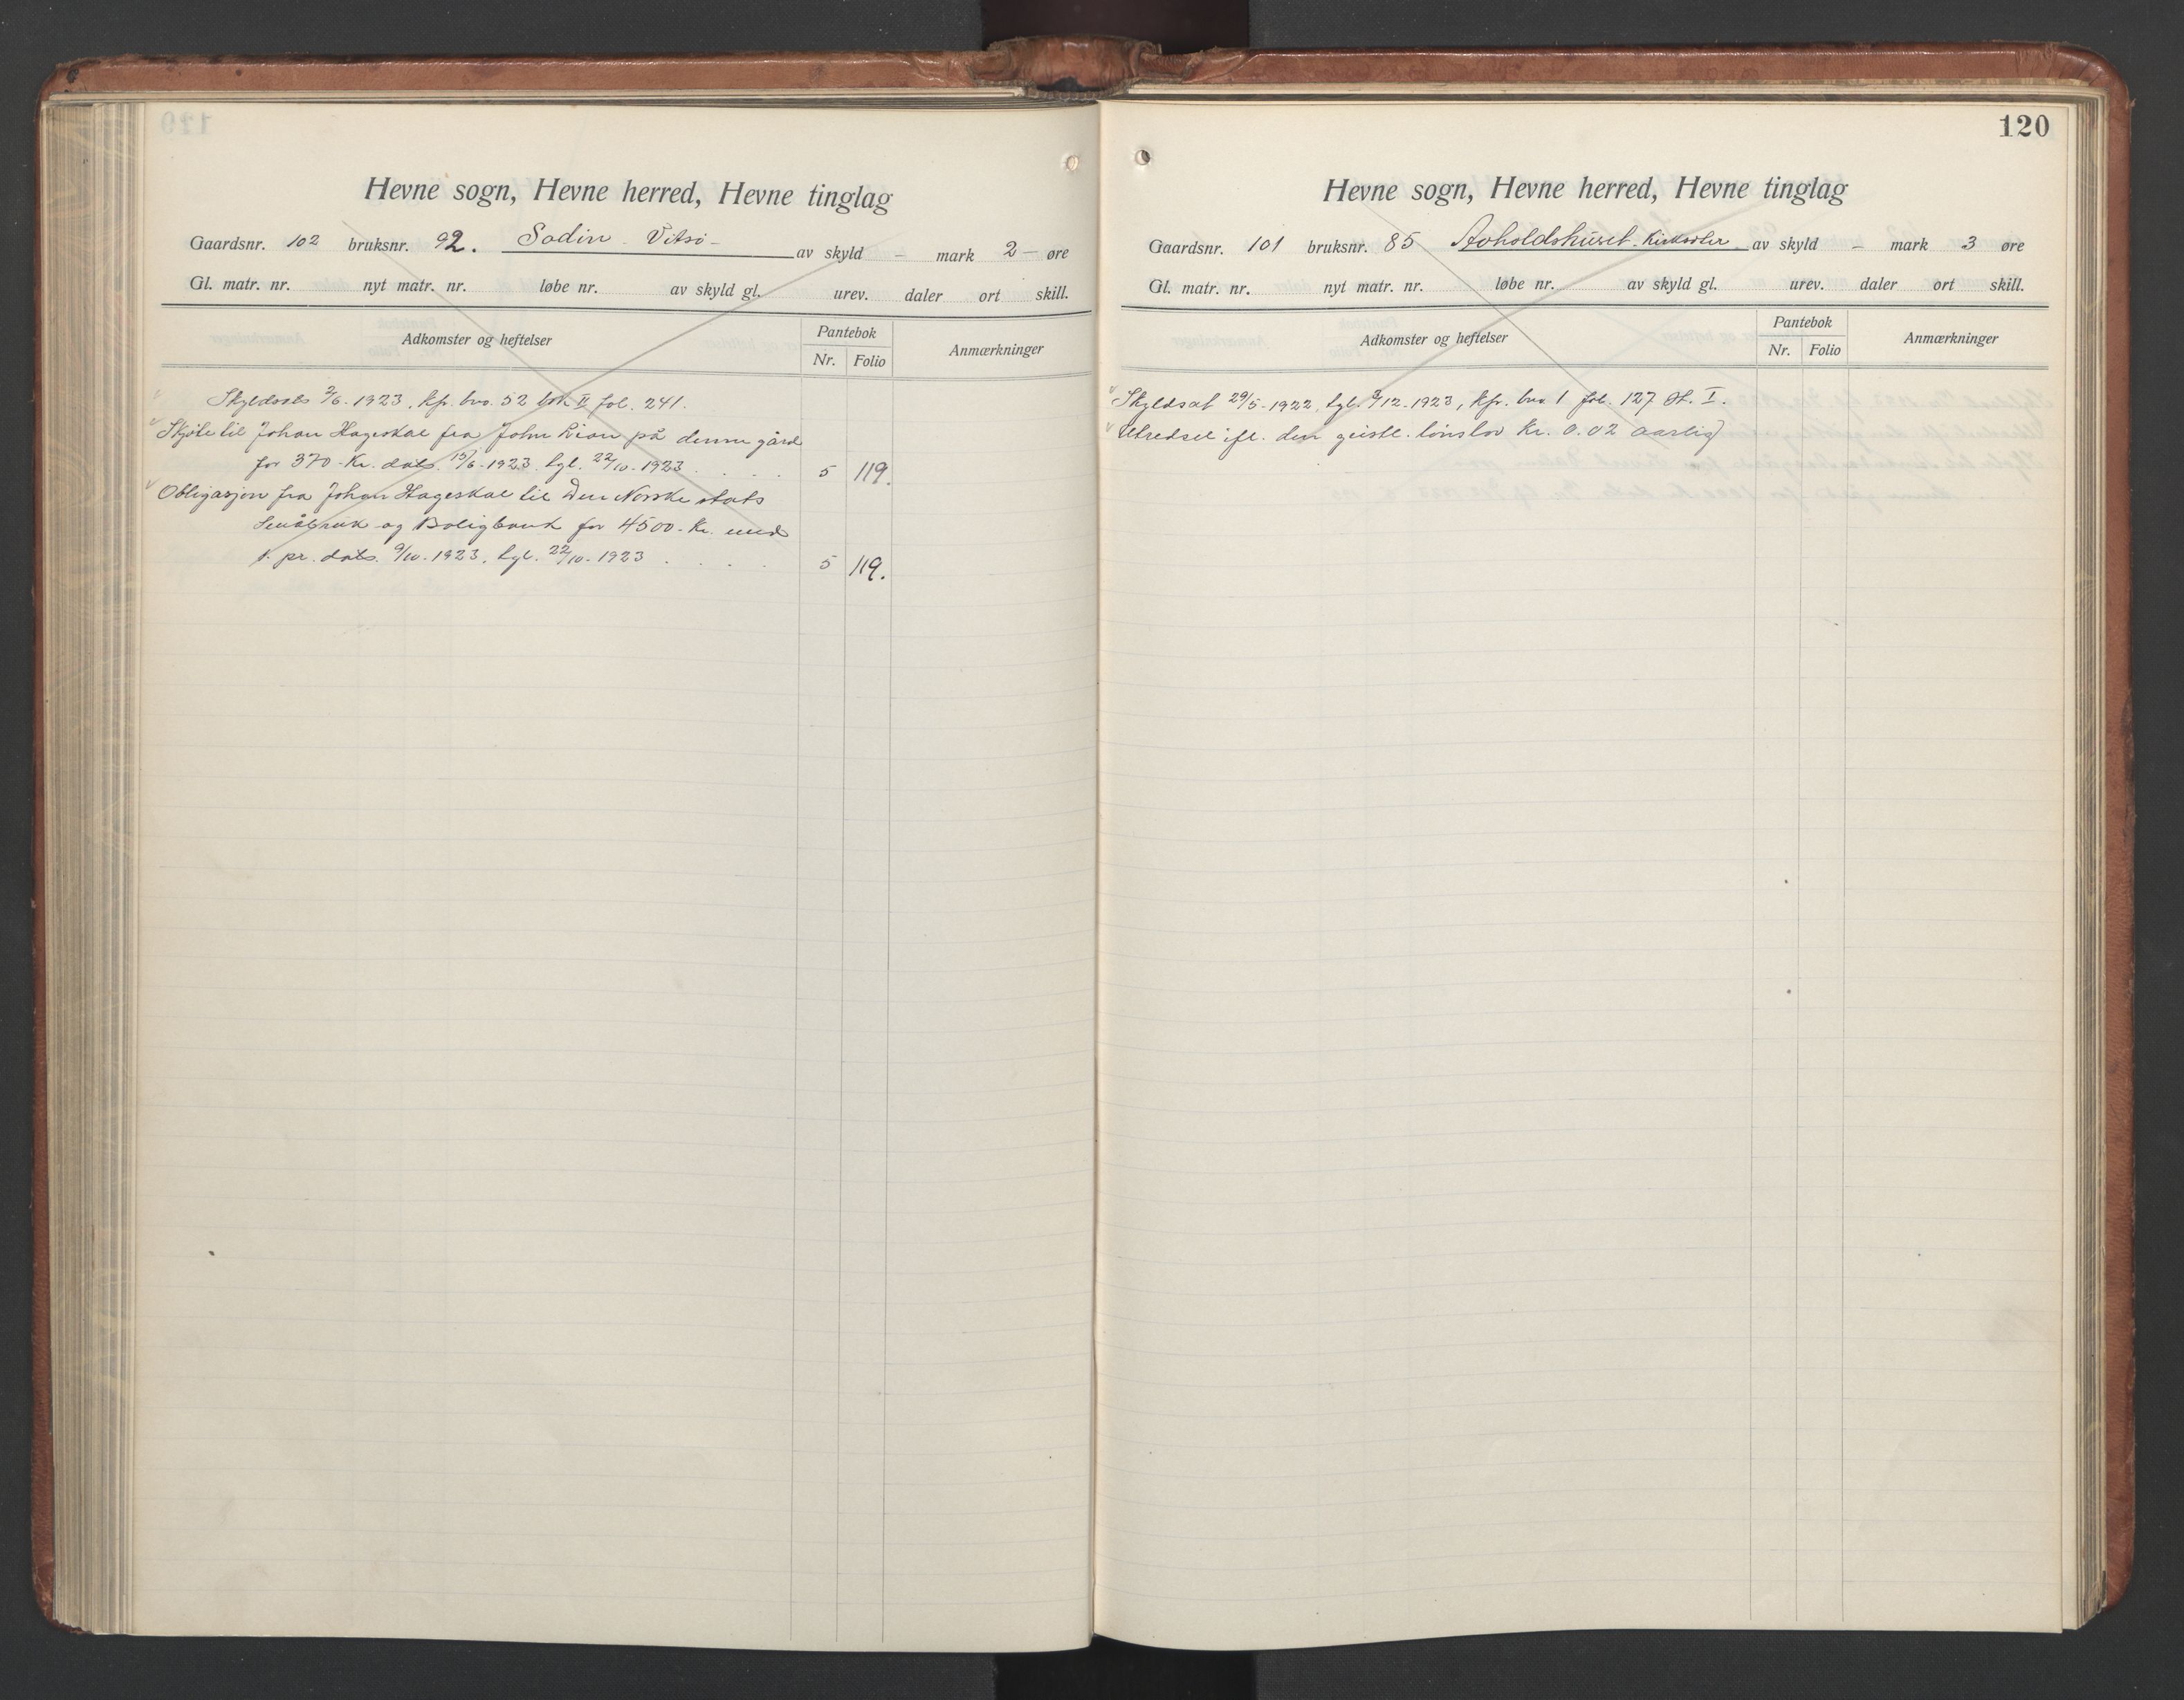 Hevne sogn, Hevne herred, Hevne tinglag
Gaardsnr. 102 bruksnr. 92. Vitsø - av skyld - mark 2 - øre
Gl. matr. nr. nyt matr. nr. løbe nr. av skyld gl. urev. daler ort skill.
Adkomster og heftelser Pantebok Anmærkninger
Nr. Folio
Skyldsats 2/6. 1923, kfr. bro. 52 bok II fol. 241.
Skjöte til Johan Hageskal fra John Lian på denne gård
for 370 - Kr. dats. 15/6 - 1923. tgl. 22/10 - 1923 . . . 5 119.
Obligasjon fra Johan Hageskal til Den Norske stats
Småbruk og Boligbank for 4500 - Kr. med
1. pr. dats. 9/10 - 1923. tgl. 22/10 - 1923 . . . . 5 119.
120
Hevne sogn, Hevne herred, Hevne tinglag
Gaardsnr. 101 bruksnr. 85 Avholdshuset. av skyld - mark 3 øre
Gl. matr. nr. nyt matr. nr. løbe nr. av skyld gl. urev. daler ort skill.
Adkomster og heftelser Pantebok Anmærkninger
Nr. Folio
Skyldsat 29/5 - 1922, tgl. 12 - 1923, kfr. bro 1 fol. 127 I.
Utredsel ifl. den geistl. lönslov Kr. 0.02 aarlig